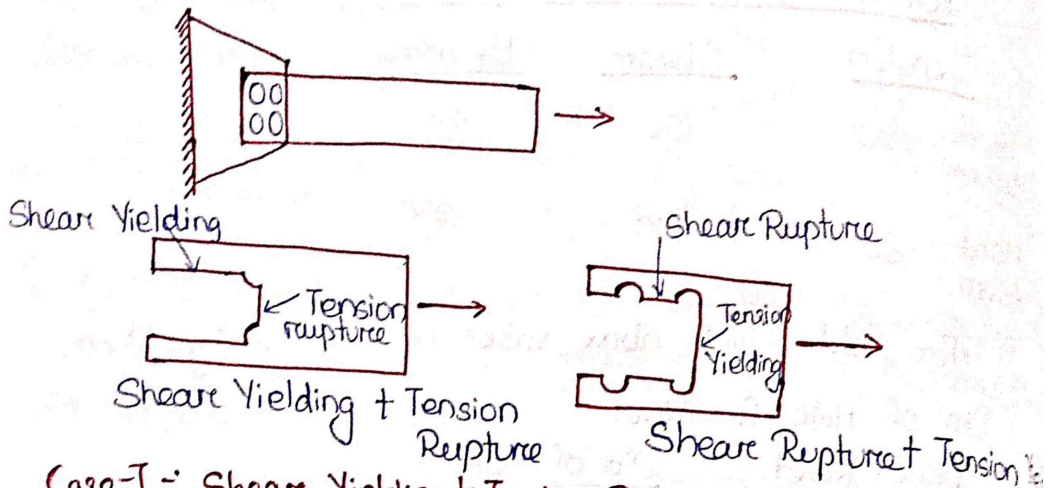 Shear Yielding
Tension
raupture
Shear Yielding + Tension
Rupture
Shear Rupture
Tension
Yielding
Shear Rupture + Tension
Case-I :- Shear Yielding + Tension